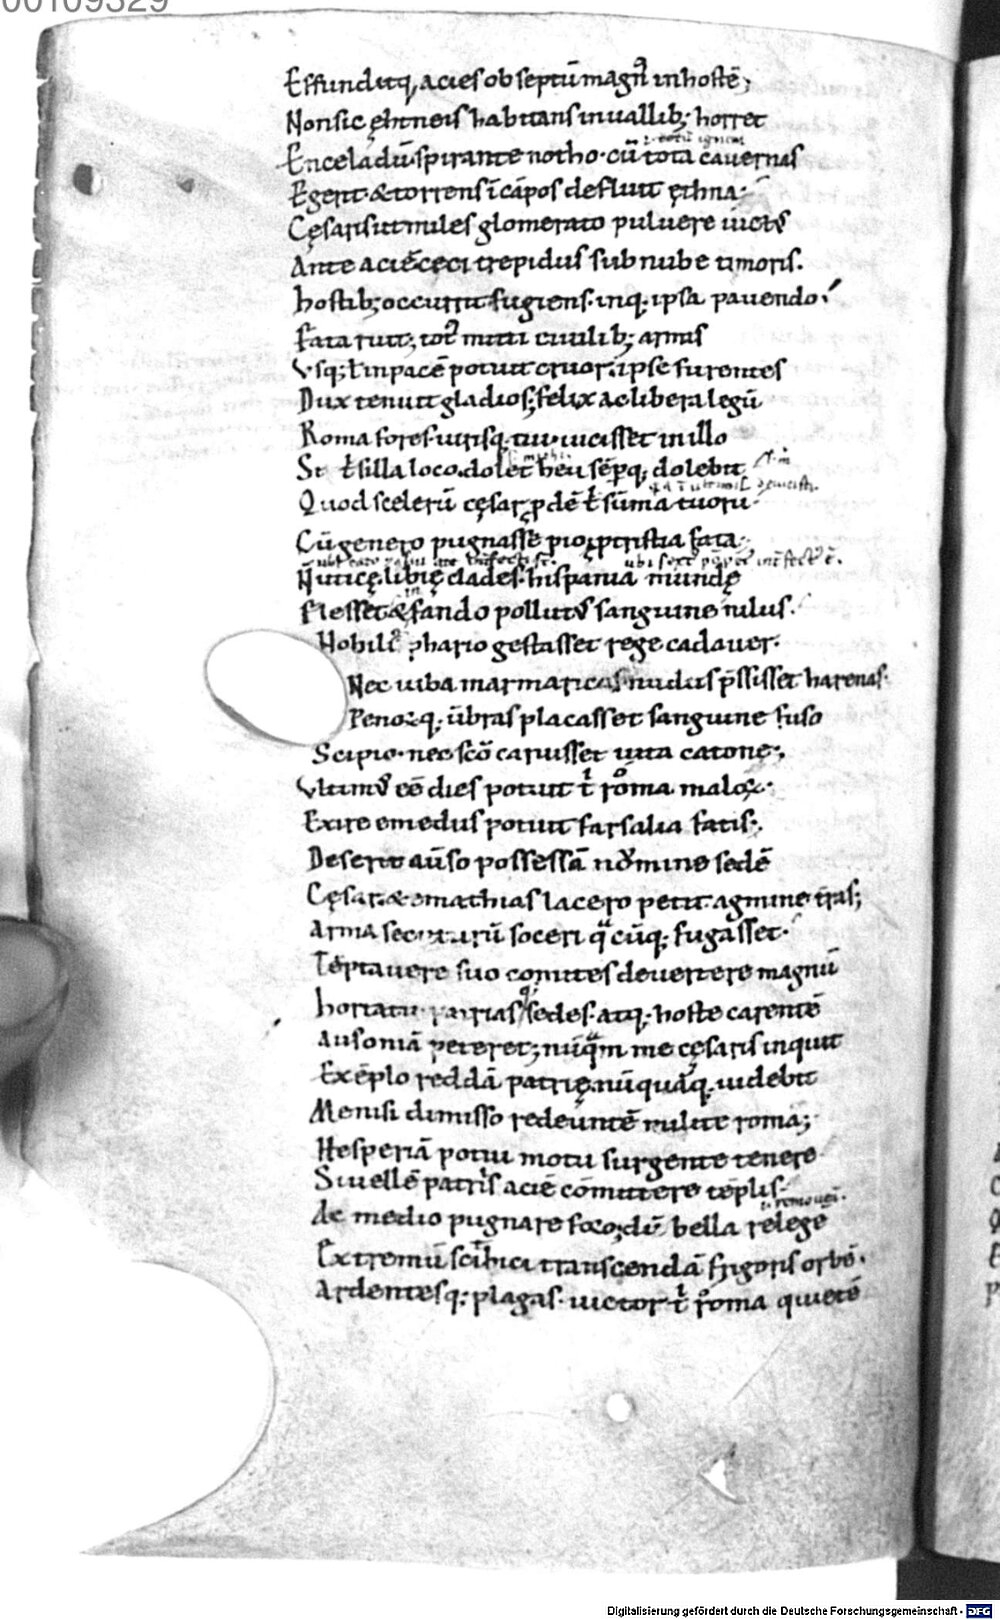 00109329
Effunditq; acies obseptū magn̄ in hostē;
Non sic ęhtneis habitans in uallib; horret
Enceladū spirante notho. cū tota cauernas
Egerit & torrens ī cāpos defluit ęthna.
Cęsaris ut miles glomerato puluere uict᷒
Ante aciē cęci trepidus sub nube timoris.
hostib; occurrit fugiens. inq; ipsa pauendo.
Fata ruit; tot᷒ mitti ciuilib; armis
Vsq; ł in pacē potuit cruor. ipse furentes
Dux tenuit gladios; felix ac libera legū
Roma fores. iurisq; tui. uicisset in illo
Si t̄ silla loco. dolet heu sēpq; dolebit
Quod scelerū cęsar ꝓdē t̄ sūma tuorū.
Cū genero pugnasse pio; ꝓ tristia fata.
N̄ uticę libię clades. hispania mundę
Flesset & fando pollut᷒ sanguine nilus.
Nobili᷒ phario gestasset rege cadauer.
Nec iuba marmaricas nudus p̄ssisset harenas.
Penoꝝq; ūbras placasset sanguine fuso
Scipio. nec scō caruisset uita catone;
Vltim᷒ eē dies potuit t̄ roma maloꝝ.
Exire e medus potuit farsalia fatis;
Deserit aūso possessā nomine sedē
Cęsar. & emathias lacero petit agmine tr̄as;
Arma secuturū soceri q̄cūq; fugasset.
Tēptauere suo comites deuertere magnū
hortatu patrias sedes. atq; hoste carentē
Ausoniā peteret; nūq̄m me cęsaris inquit
Exēplo reddā patrię. nūquāq; uidebit
Me nisi dimisso redeuntē milite roma;
Hesperiā potui motu surgente tenere
Si uellē patriis aciē cōmittere tēplis.
Ac medio pugnare foro; dū bella relege
Extremū scithici transcendā frigoris orbē.
Ardentesq; plagas. uictor t̄ roma quietē
Digitalisierung gefördert durch die Deutsche Forschungsgemeinschaft - DFG